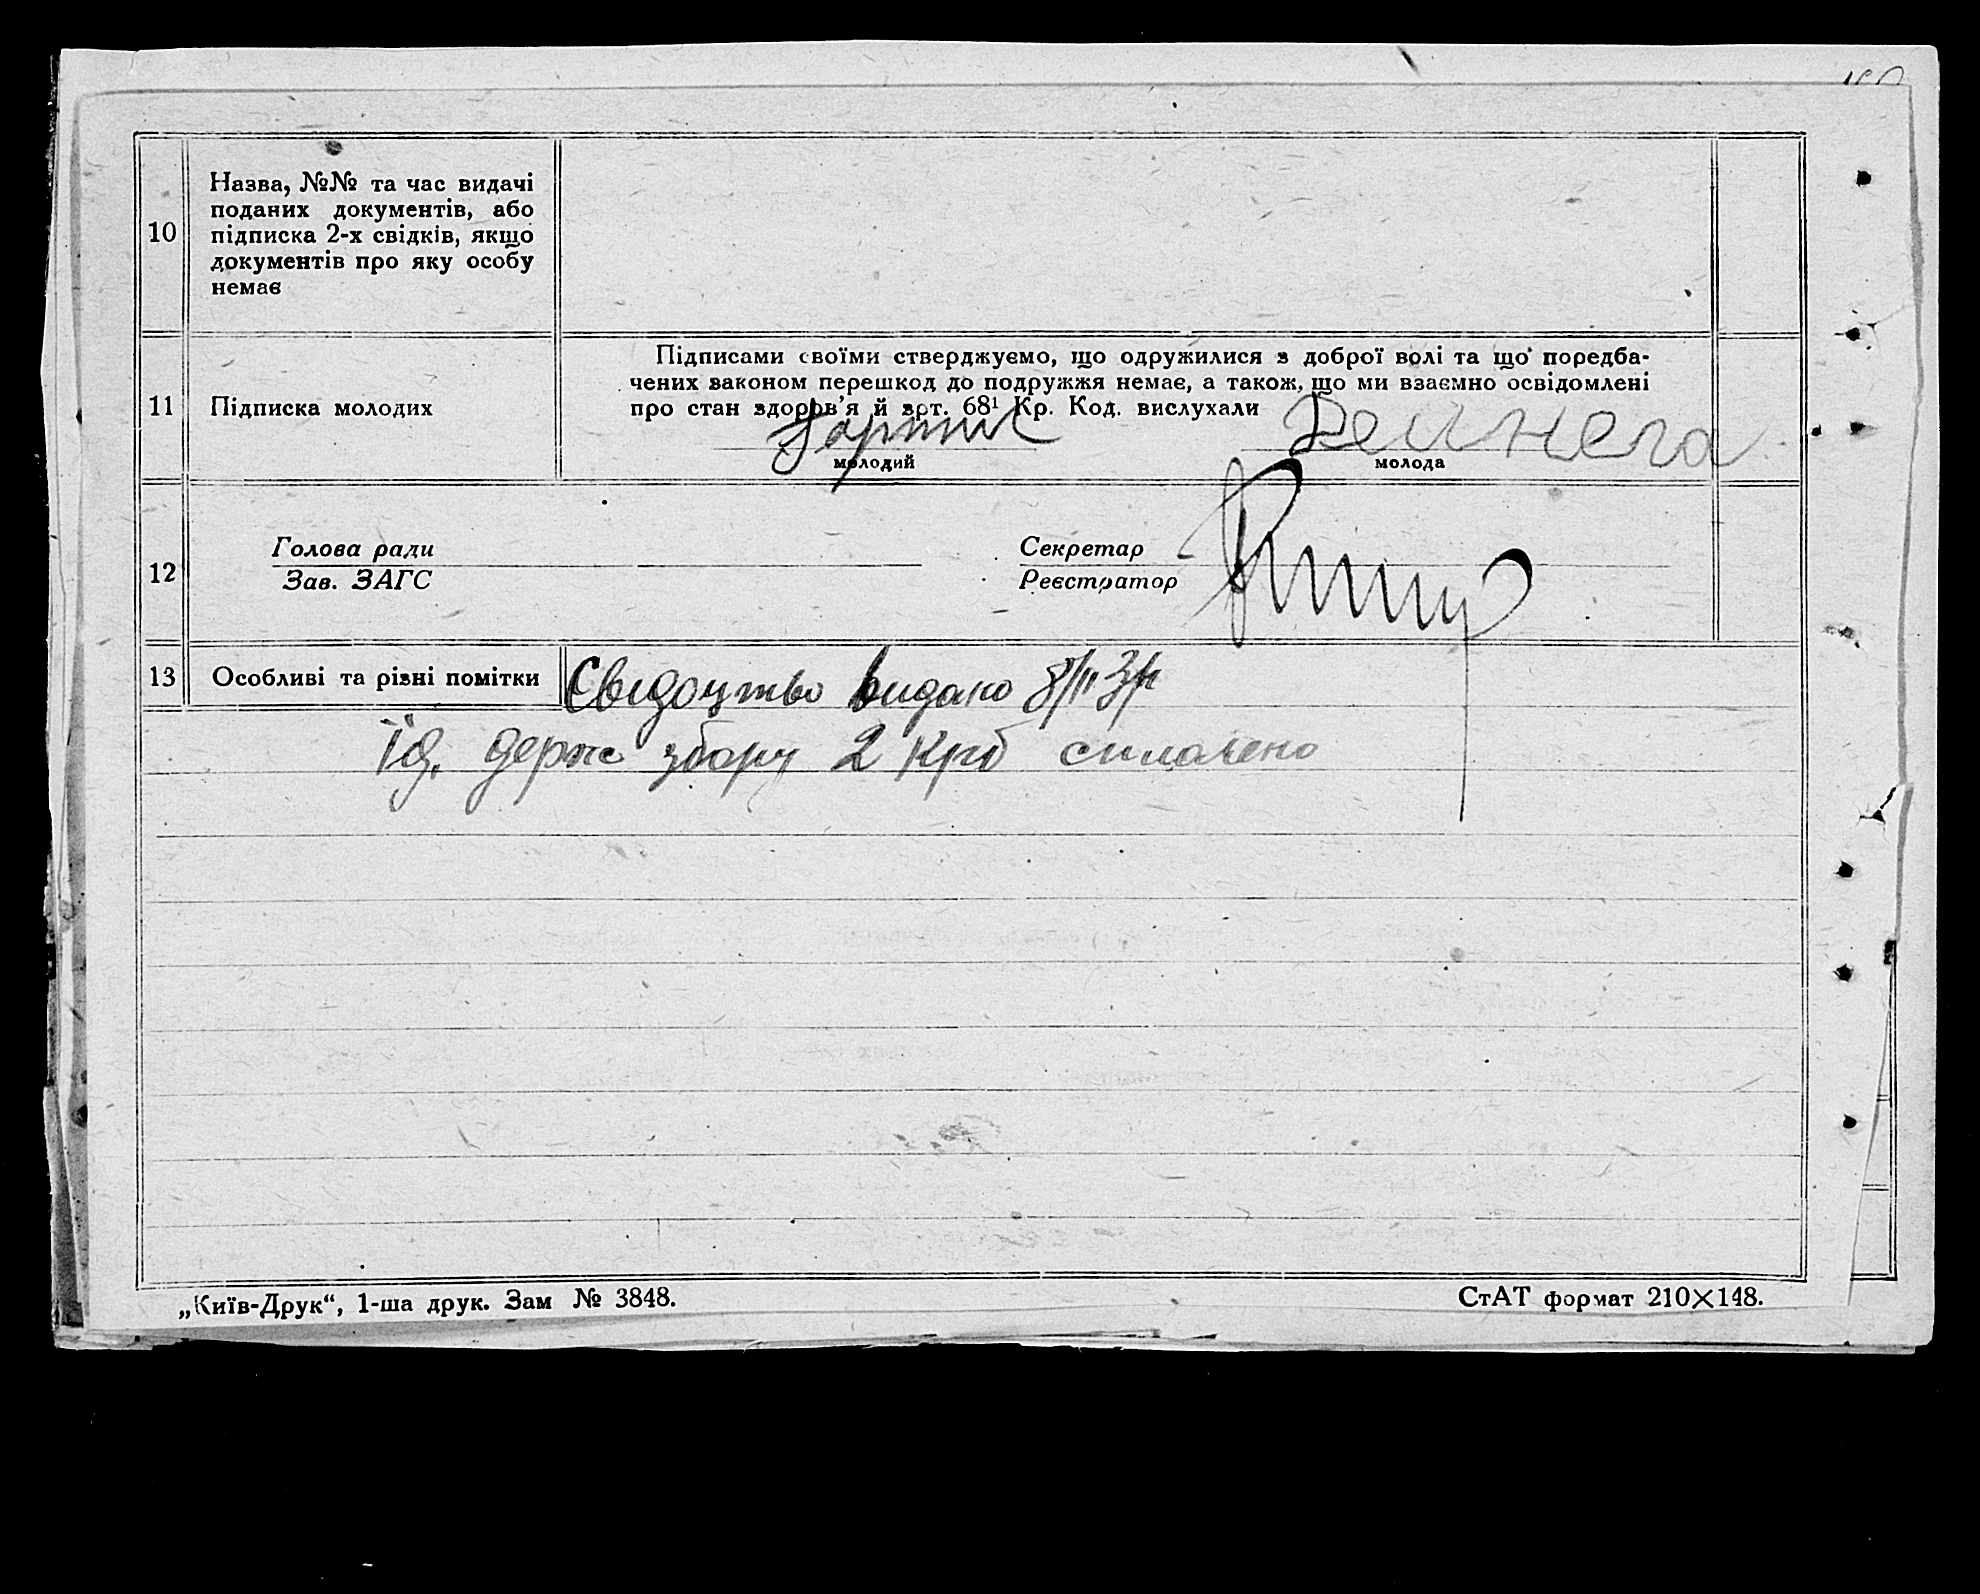 10
Назва, №№ та час видачі
поданих документів, або
підписка 2-х свідків, якщо
документів про яку особу
немає
11
Підписка молодих
Підписами своїми стверджуємо, що одружилися з доброї волі та що поредба-
чених законом перешкод до подружжя немає, а також, що ми взаємно освідомлені
про стан здоров’я й арт. 68¹ Кр. Код. вислухали
Дейнега
молодий
молода
12
Голова ради
Зав. ЗАГС
Секретар
Реєстратор
13
Особливі та різні помітки
Свідоцтво видано 8/II
держ збору 2 крб сплачено
„Київ-Друк“, 1-ша друк. Зам № 3848.
СтАТ формат 210×148.